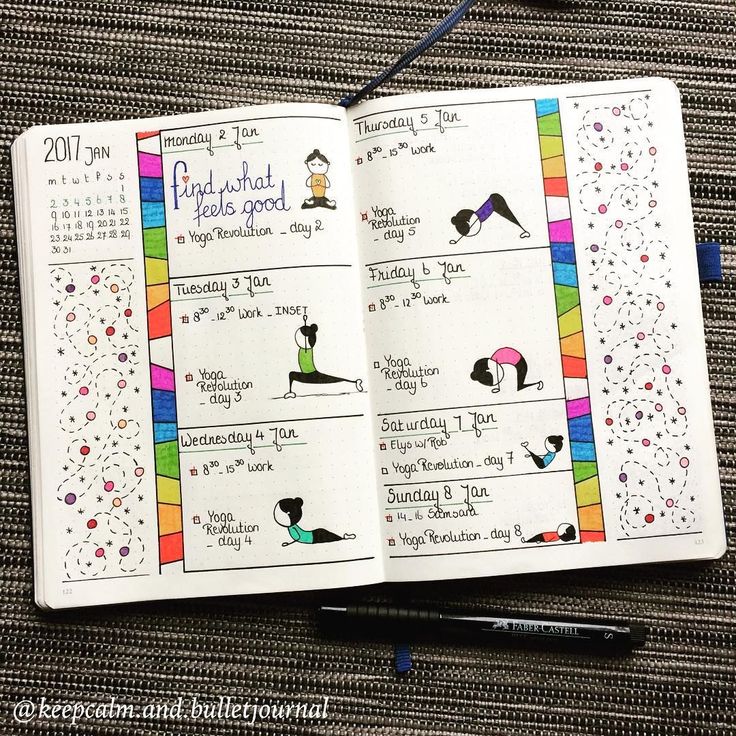 2017 JAN
m t w t f s s
1
2 3 4 5 6 7 8
9 10 11 12 13 14 15
16 17 18 19 20 21 22
23 24 25 26 27 28 29
30 31
Monday 2 Jan
find what
feels good
Yoga Revolution _ day 2
Tuesday 3 Jan
8³⁰ _ 12³⁰ Work _ INSET
Yoga
Revolution
_ day 3
Wednesday 4 Jan
8³⁰ _ 15³⁰ Work
Yoga
Revolution
_ day 4
122
Thursday 5 Jan
8³⁰ _ 15³⁰ Work
Yoga
Revolution
_ day 5
Friday 6 Jan
8³⁰ _ 12³⁰ Work
Yoga
Revolution
_ day 6
Saturday 7 Jan
Elys w/Rob
Yoga Revolution _ day 7
Sunday 8 Jan
14 _ 16 Samsara
Yoga Revolution _ day 8
123
FABER-CASTELL
S
@keepcalm.and.bulletjournal